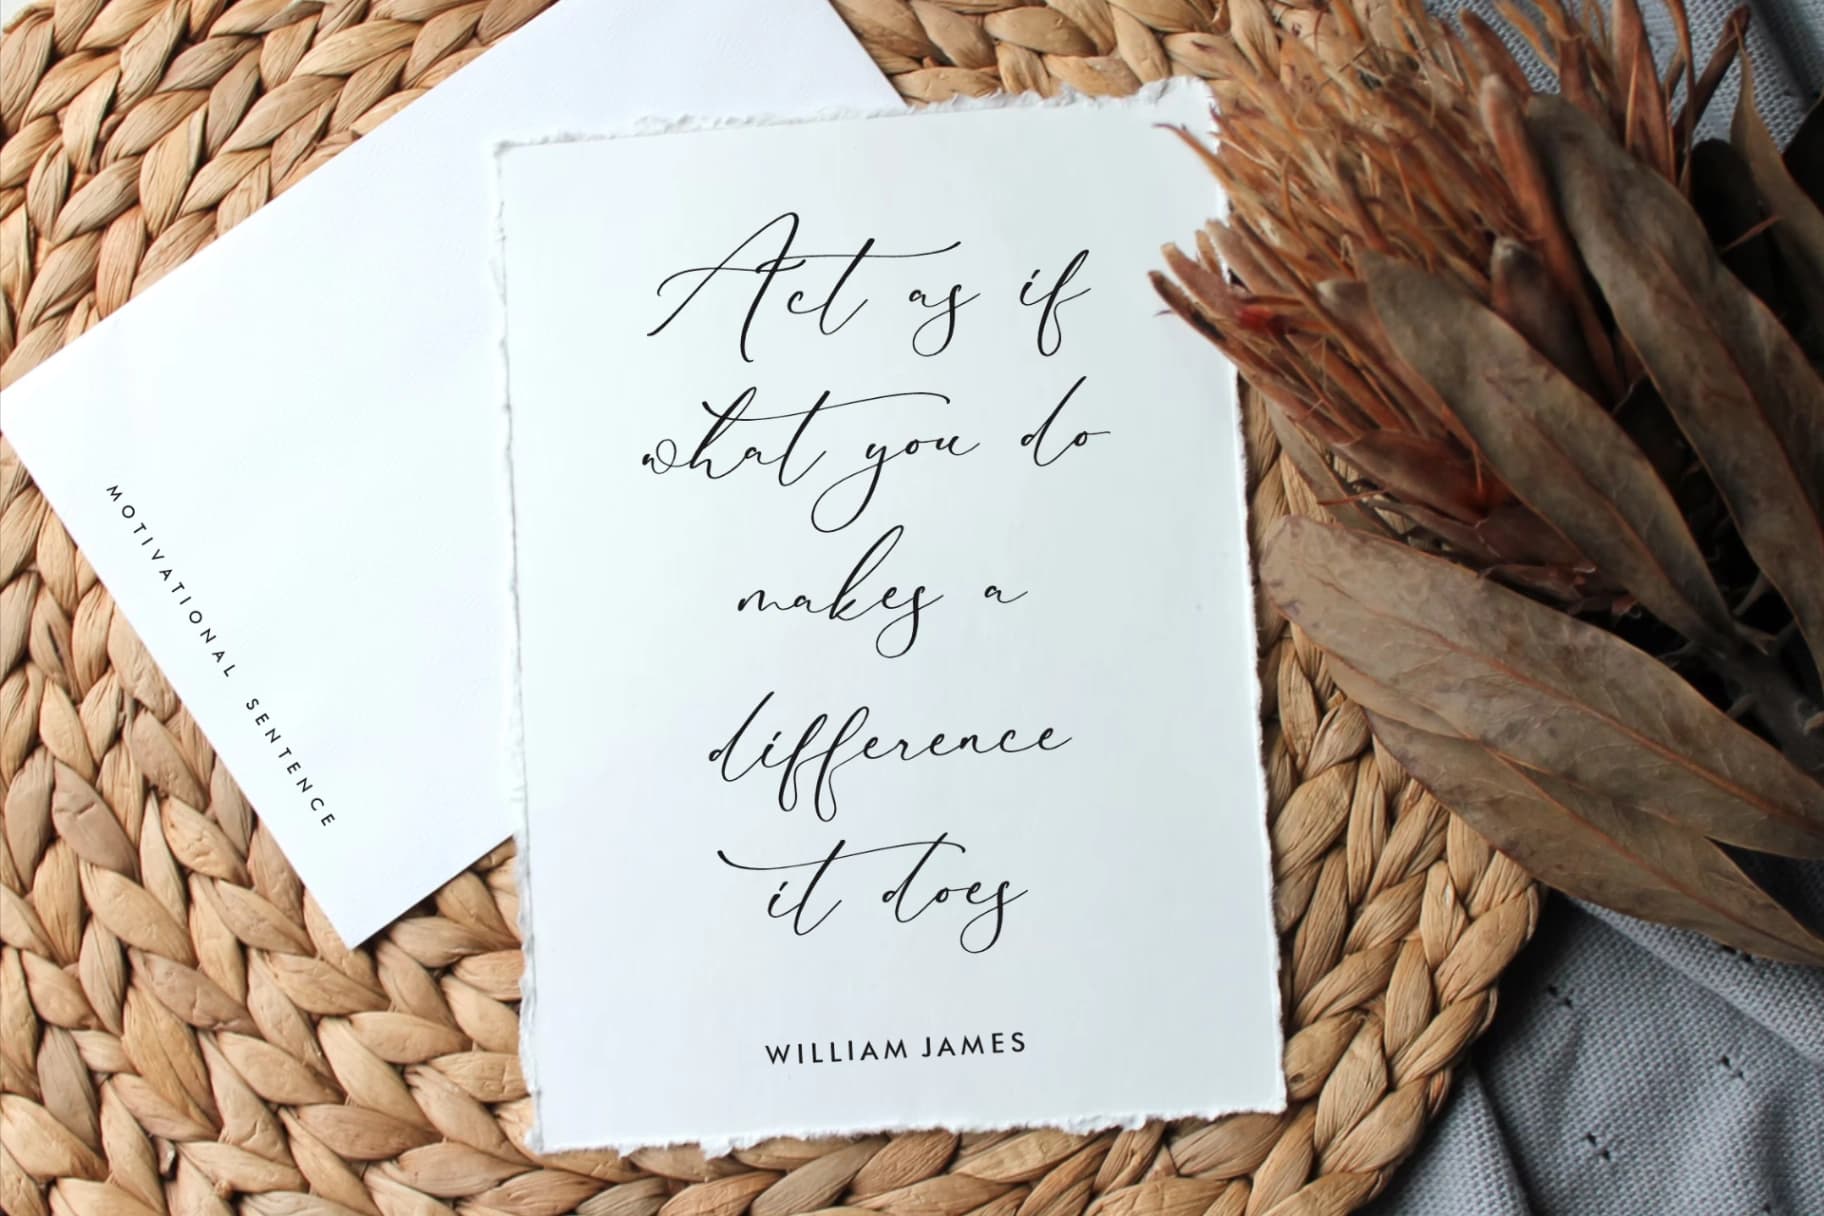 Act as if
what you do
makes a
difference
it does
WILLIAM JAMES
MOTIVATIONAL SENTENCE